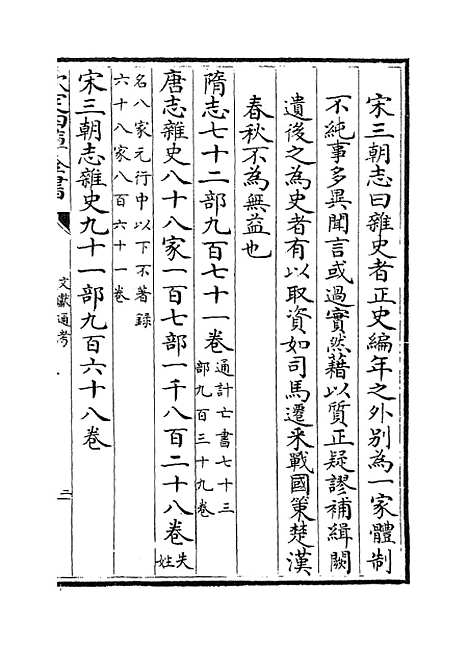 宋三朝志曰雜史者正史編年之外别為一家體制
不純事多異聞言或過實然藉以質正疑謬補緝闕
遺後之為史者有以取資如司馬遷采戰國策楚漢
春秋不為無益也
隋志七十二部九百七十一卷通計亡書七十三
部九百三十九卷
唐志雜史八十八家一百七部一千八百二十八卷失
姓
名八家元行中以下不著録
六十八家八百六十一卷
宋三朝志雜史九十一部九百六十八卷
欽定四庫全書
文獻通考
三